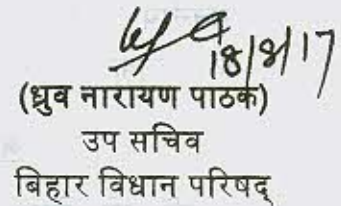 18/8/17
(ध्रुव नारायण पाठक)
उप सचिव
बिहार विधान परिषद्